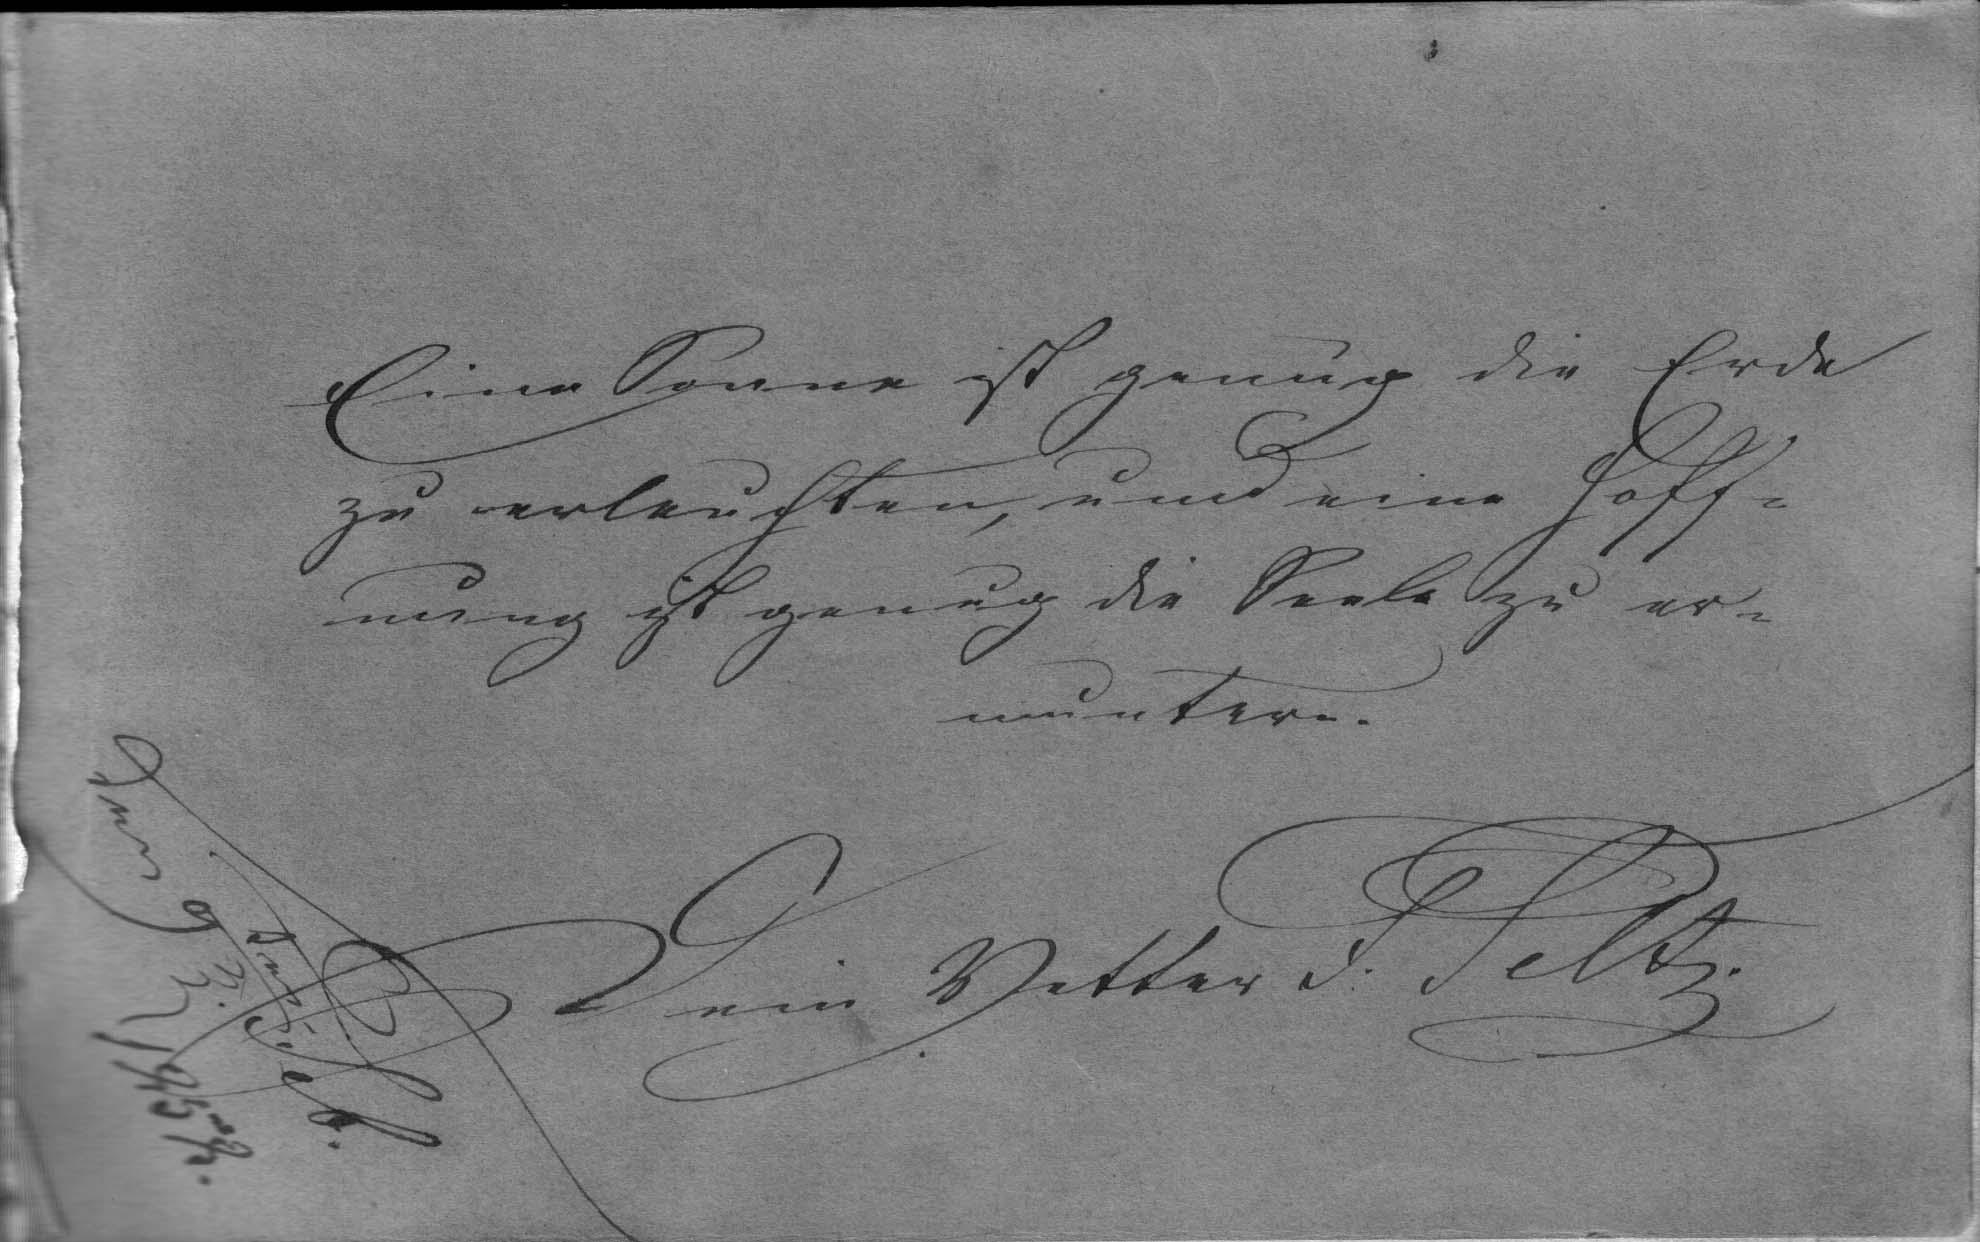 Eine Sonne ist genug die Erde
zu erleuchten, und eine Hoff-
nung ist genug die Seele zu er-
muntern.
Dein Vetter J. Seltz.